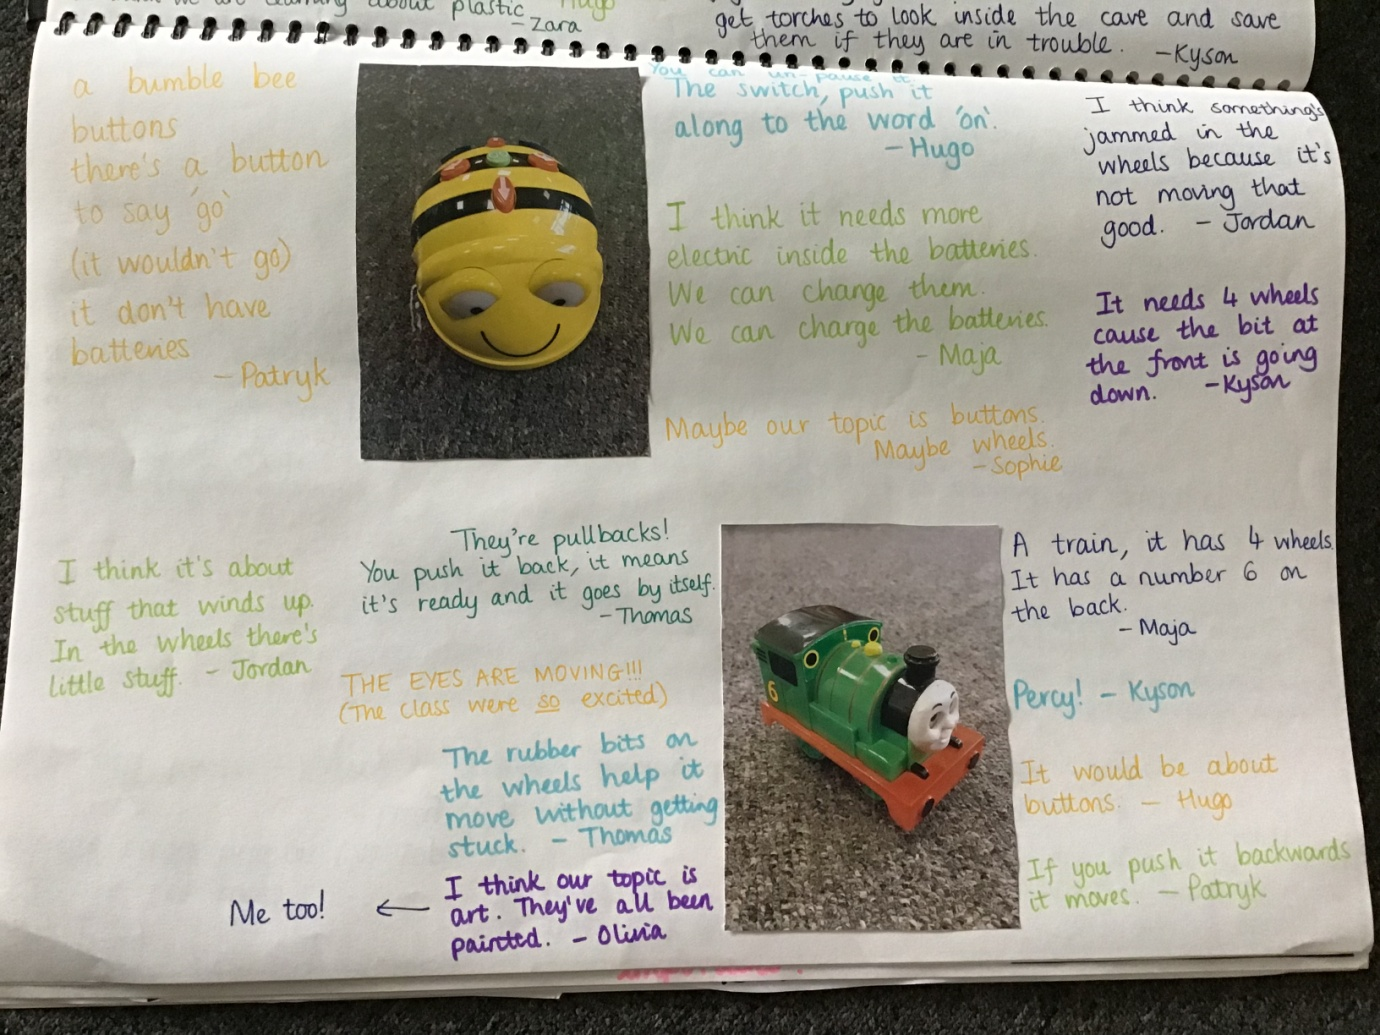 about plastic Hugo
- Zara
get torches to look inside the cave and save
them if they are in trouble.
- Kyson
a bumble bee
buttons
there's a button
to say 'go'
(it wouldn't go)
it don't have
batteries
- Patryk
You can un-pause it
The switch, push it
along to the word 'on'.
- Hugo
I think it needs more
electric inside the batteries.
We can change them.
We can charge the batteries.
- Maja
Maybe our topic is buttons.
Maybe wheels.
- Sophie
I think something's
jammed in the
wheels because it's
not moving that
good. - Jordan
It needs 4 wheels
cause the bit at
the front is going
down. - Kyson
I think it's about
stuff that winds up.
In the wheels there's
little stuff. - Jordan
They're pullbacks!
You push it back, it means
it's ready and it goes by itself.
- Thomas
THE EYES ARE MOVING!!!
(The class were so excited)
The rubber bits on
the wheels help it
move without getting
stuck. - Thomas
I think our topic is
art. They've all been
painted. - Olivia
Me too!
6
A train, it has 4 wheels.
It has a number 6 on
the back.
- Maja
Percy! - Kyson
It would be about
buttons. - Hugo
If you push it backwards
it moves. - Patryk